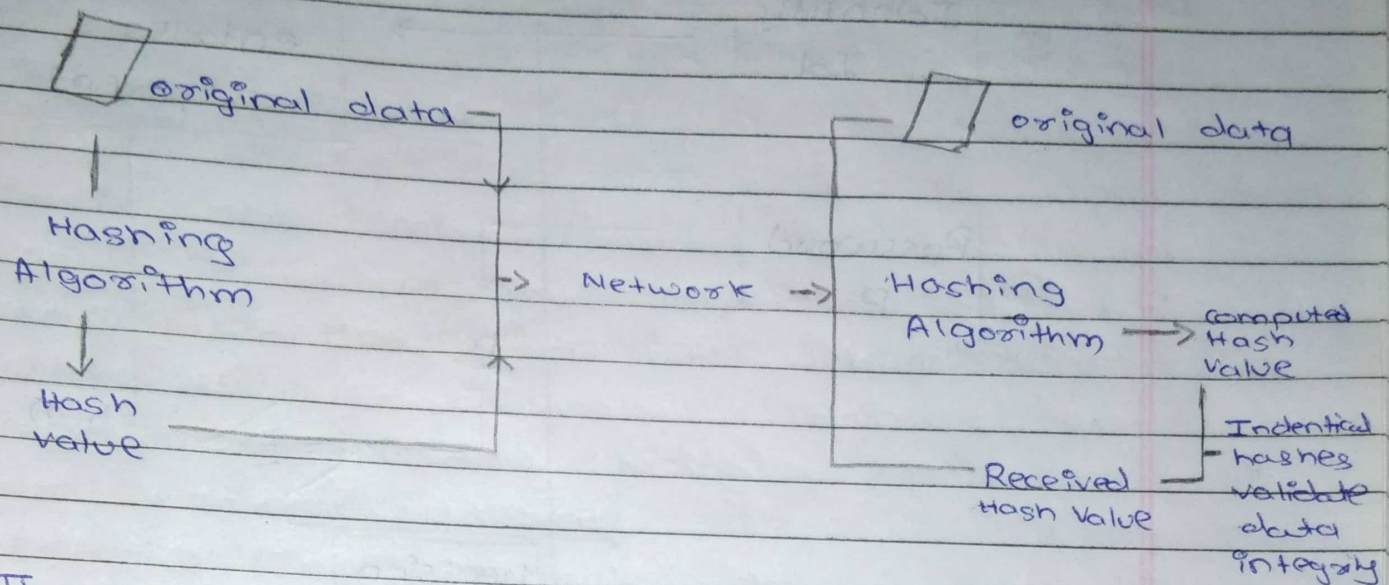 original data
Hashing
Algorithm
Hash
value
Network
original data
Hashing
Algorithm
computed
Hash
value
Received
Hash Value
Indentical
hashes
validate
data
integrity